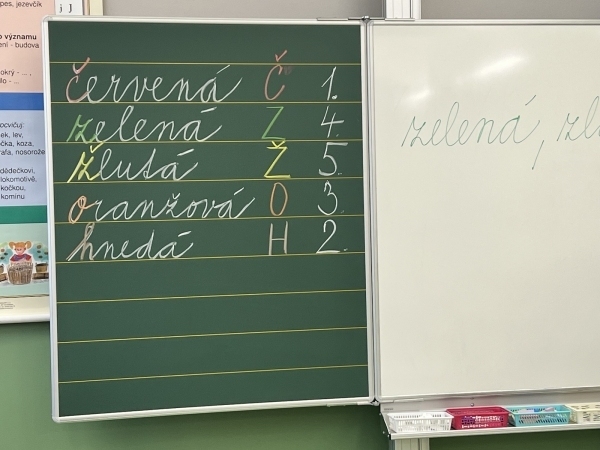 pes, jezevčík
o významu
ení - budova
okry - ... ,
ílo - ...
ocviču:
ek, lev,
čka, koza,
rafa, nosorože
dědečkovi,
lokomotivě,
kočkou,
kominu
červená Č 1.
zelená Z 4.
žlutá Ž 5.
oranžová O 3.
hnedá H 2.
zelená, zl